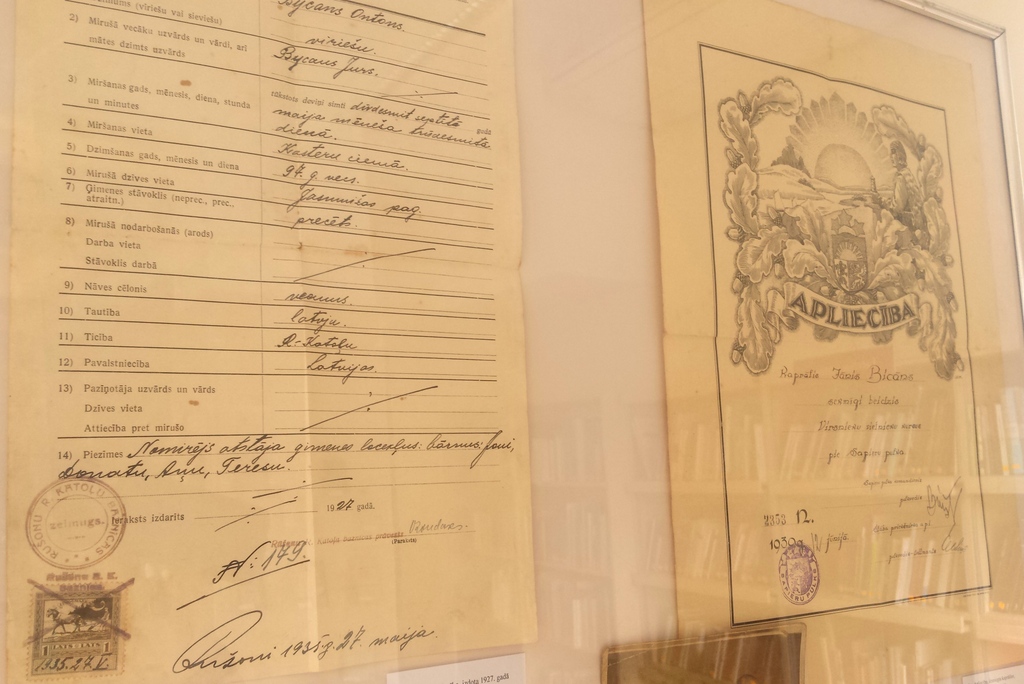 (vīriešu vai sieviešu)
Bycans Ontons.
2) Mirušā vecāku uzvārds un vārdi, arī
mātes dzimts uzvārds
vīriešu.
Bycans Jurs.
3) Miršanas gads, mēnesis, diena, stunda
un minutes
tūkstots deviņi simti divdesmit septītā gadā
maija mēneša trīsdesmitā
dienā.
4) Miršanas vieta
Kasteru ciemā.
5) Dzimšanas gads, mēnesis un diena
97. g. vecs.
6) Mirušā dzīves vieta
Jasmuižas pag.
7) Ģimenes stāvoklis (neprec., prec.,
atraitn.)
precēts.
8) Mirušā nodarbošanās (arods)
Darba vieta
Stāvoklis darbā
9) Nāves cēlonis
vecums.
10) Tautība
latvju.
11) Ticība
R-Katoļu
12) Pavalstniecība
Latvijas.
13) Paziņotāja uzvārds un vārds
Dzīves vieta
Attiecība pret mirušo
14) Piezīmes Nomirējs atstāja ģimenes locekļus: bārnus: Joni,
Donatu, Aņu, Teresu.
Ieraksts izdarīts 1927 gadā.
(Paraksts)
№ 179.
RUŠONU R. KATOĻU BAZNĪCAS
zeimogs.
1 LATS LATS 1
1935.27.V.
Rušoni 1935 g. 27. maija.
izdota 1927. gadā
APLIECĪBA
Kaprālis Jānis Bicāns
sekmīgi beidzis
Virsnieku vietnieku kursus
pie Sapieru pulka
2353 12.
1939 g. jūnijā